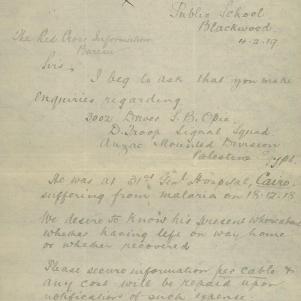 Public School
Blackwood
4-2-19
The Red Cross Information
Bureau
Sirs,
I beg to ask that you make
enquiries regarding
Driver S. B. Opie
D. Troop Signal Squad
Anzac Mounted Division
Palestine Egypt.
He was at 31st Genl Hospital, Cairo,
suffering from malaria on 18-12-18.
We desire to know his present whereabouts
whether having left on way home
or whether recovered
Please secure information per cable &
any cost will be repaid upon
notification of such expense.